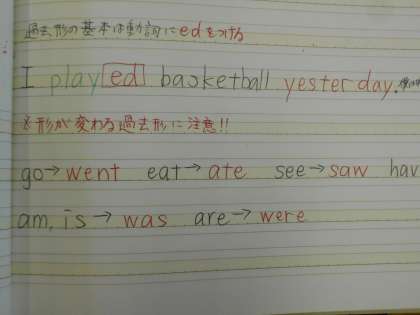 過去形の基本は動詞にedをつける
I played basketball yesterday.
※形が変わる過去形に注意!!
go→went eat→ate see→saw hav
am, is→was are→were